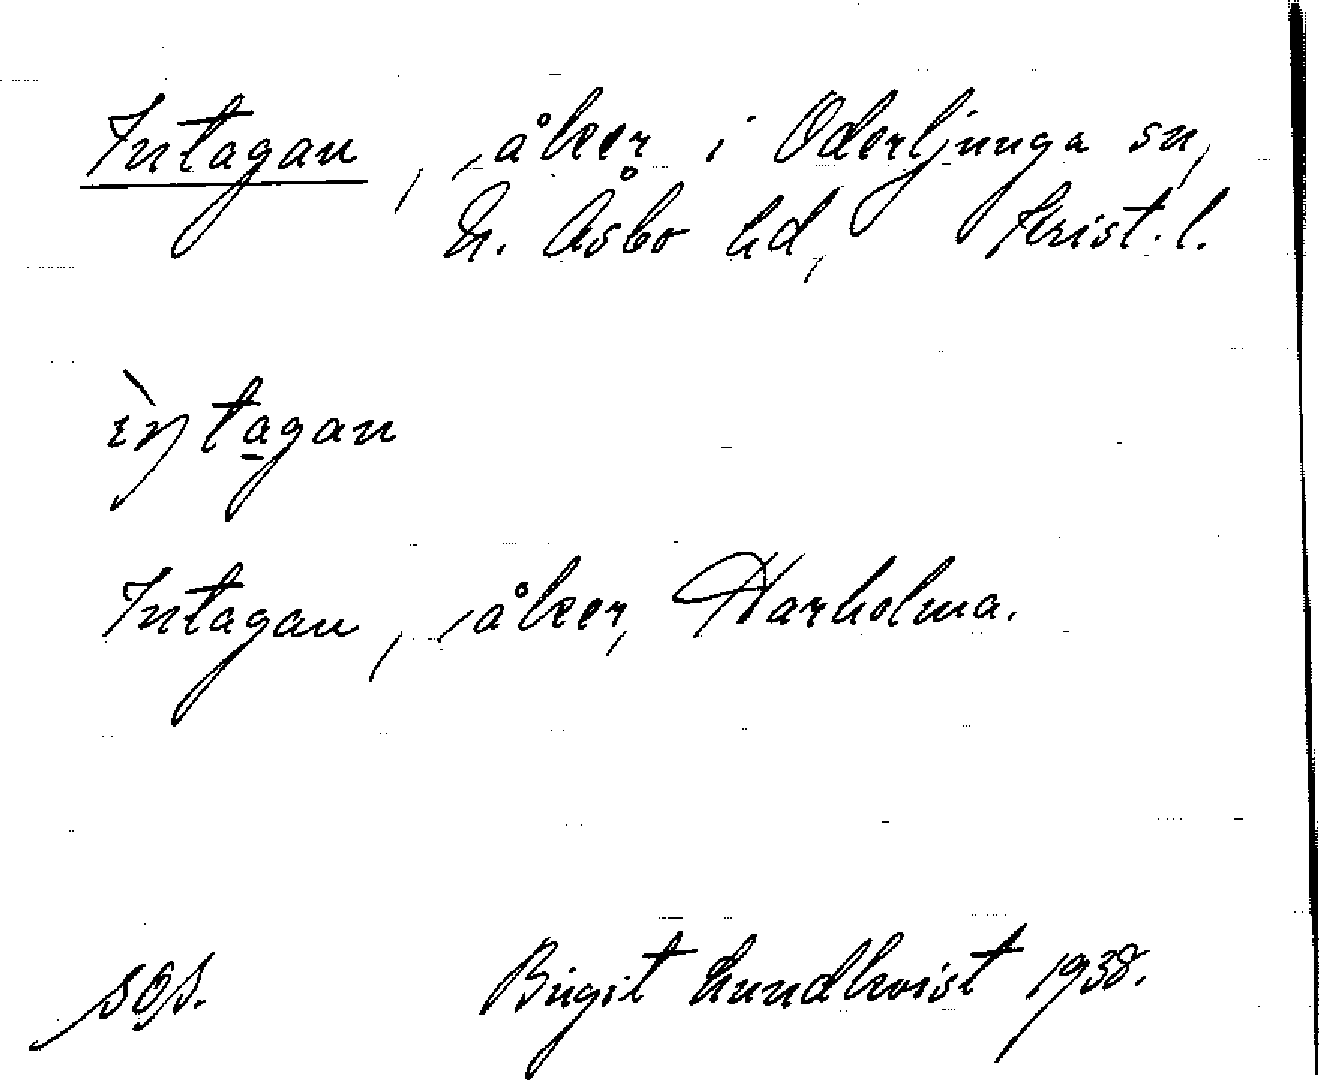 Intagan, åker i Oderljunga sn,
N. Åsbo hd, Krist. l.
ìntagan
Intagan, åker, Harholma.
SOS. Birgit Lundkvist 1938.